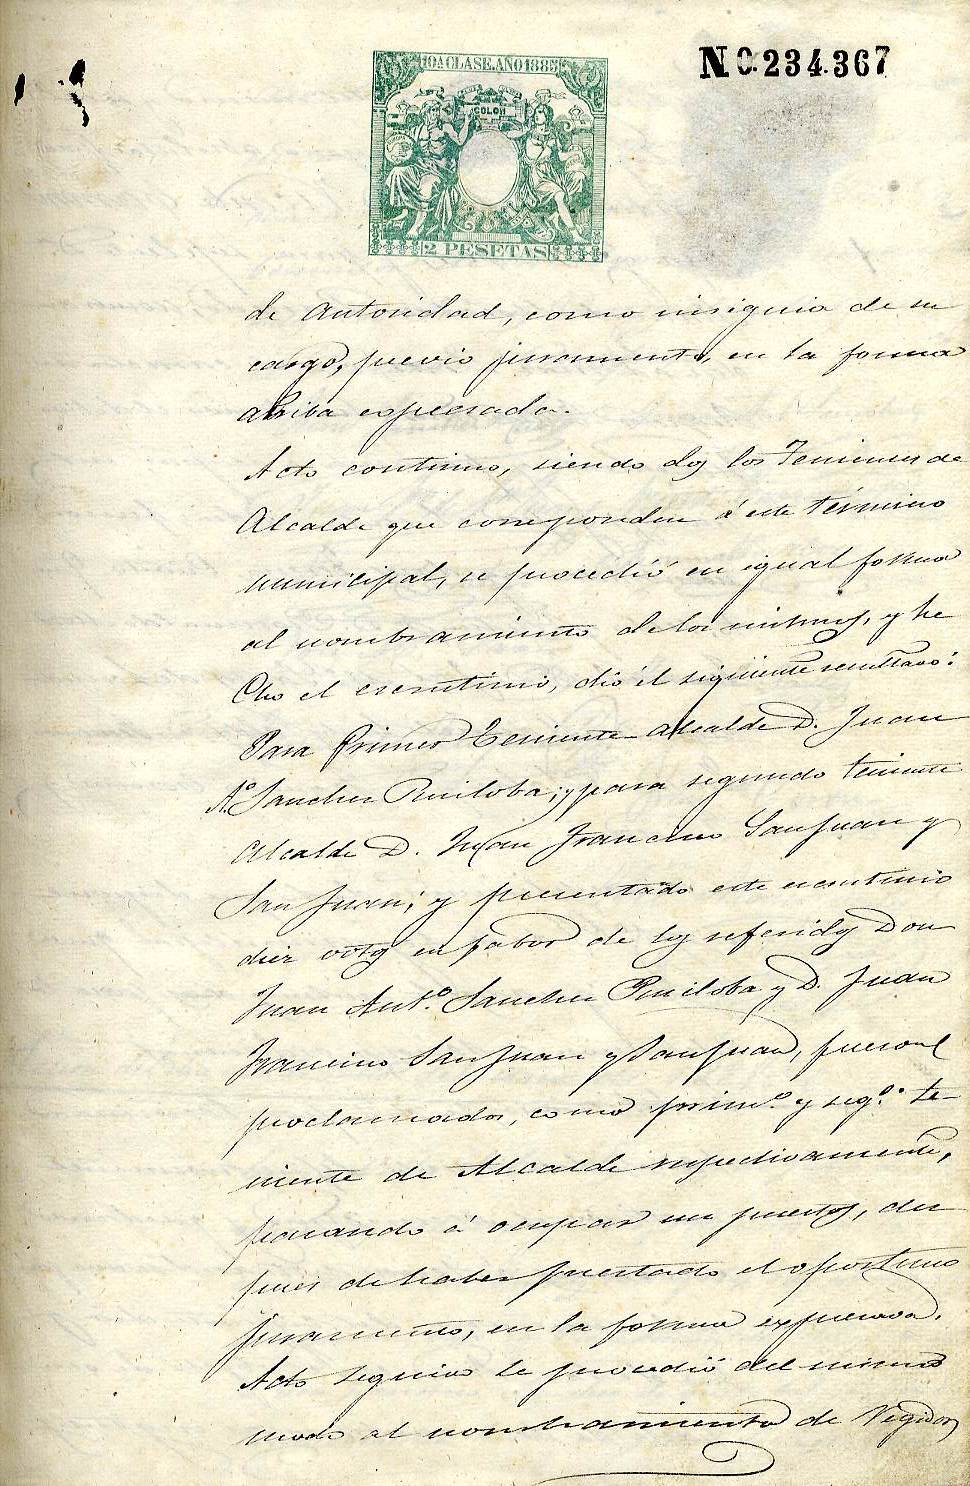 10A CLASE. AÑO 1885
N 0.234.367
COLON
2 PESETAS
de Autoridad, como insignia de su
cargo, previo juramento, en la forma
arriba expresada.
Acto continuo, siendo dos los Tenientes de
Alcalde que corresponden á este término
municipal, se procedió en igual forma
al nombramiento de los mismos, y he
cho el escrutinio, dió el siguiente resultado:
Para Primer Teniente Alcalde D. Juan
A.º Sanchez Ruiloba; y para segundo teniente
Alcalde D. Juan Francisco SanJuan y
San Juan; y presentado este escrutinio
diez votos en fabor de los referidos Don
Juan Ant.º Sanchez Ruiloba y D. Juan
Francisco SanJuan y SanJuan, fueron
proclamados, como prim.º y seg.º te-
niente de Alcalde respectivamente,
pasando á ocupar sus puestos, des
pues de haber prestado el oportuno
juramento, en la forma expresada.
Acto seguido se procedió del mismo
modo al nombramiento de Regidor